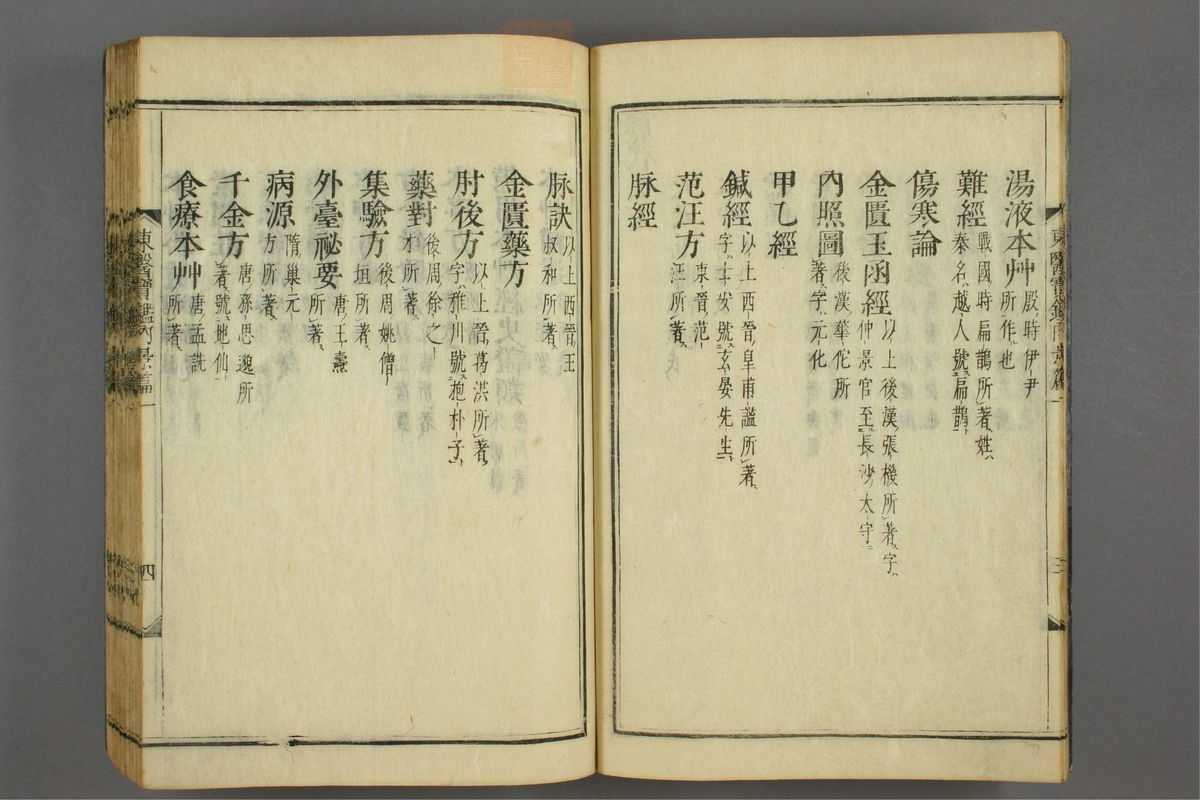 湯液本艸 殷時伊尹所作也
難經 戰國時扁鵲所著姓秦名越人號扁鵲
傷寒論
金匱玉函經 以上後漢張機所著字仲景官至長沙太守
內照圖 後漢華佗所著字元化
甲乙經
鍼經 以上西晉皇甫謐所著字士安號玄晏先生
范汪方 東晉范汪所著
脉經
脉訣 以上西晉王叔和所著
金匱藥方
肘後方 以上晉葛洪所著字稚川號抱朴子
藥對 後周徐之才所著
集驗方 後周姚僧垣所著
外臺祕要 唐王燾所著
病源 隋巢元方所著
千金方 唐孫思邈所著號地仙
食療本艸 唐孟詵所著
東醫寶鑑內景篇一
四